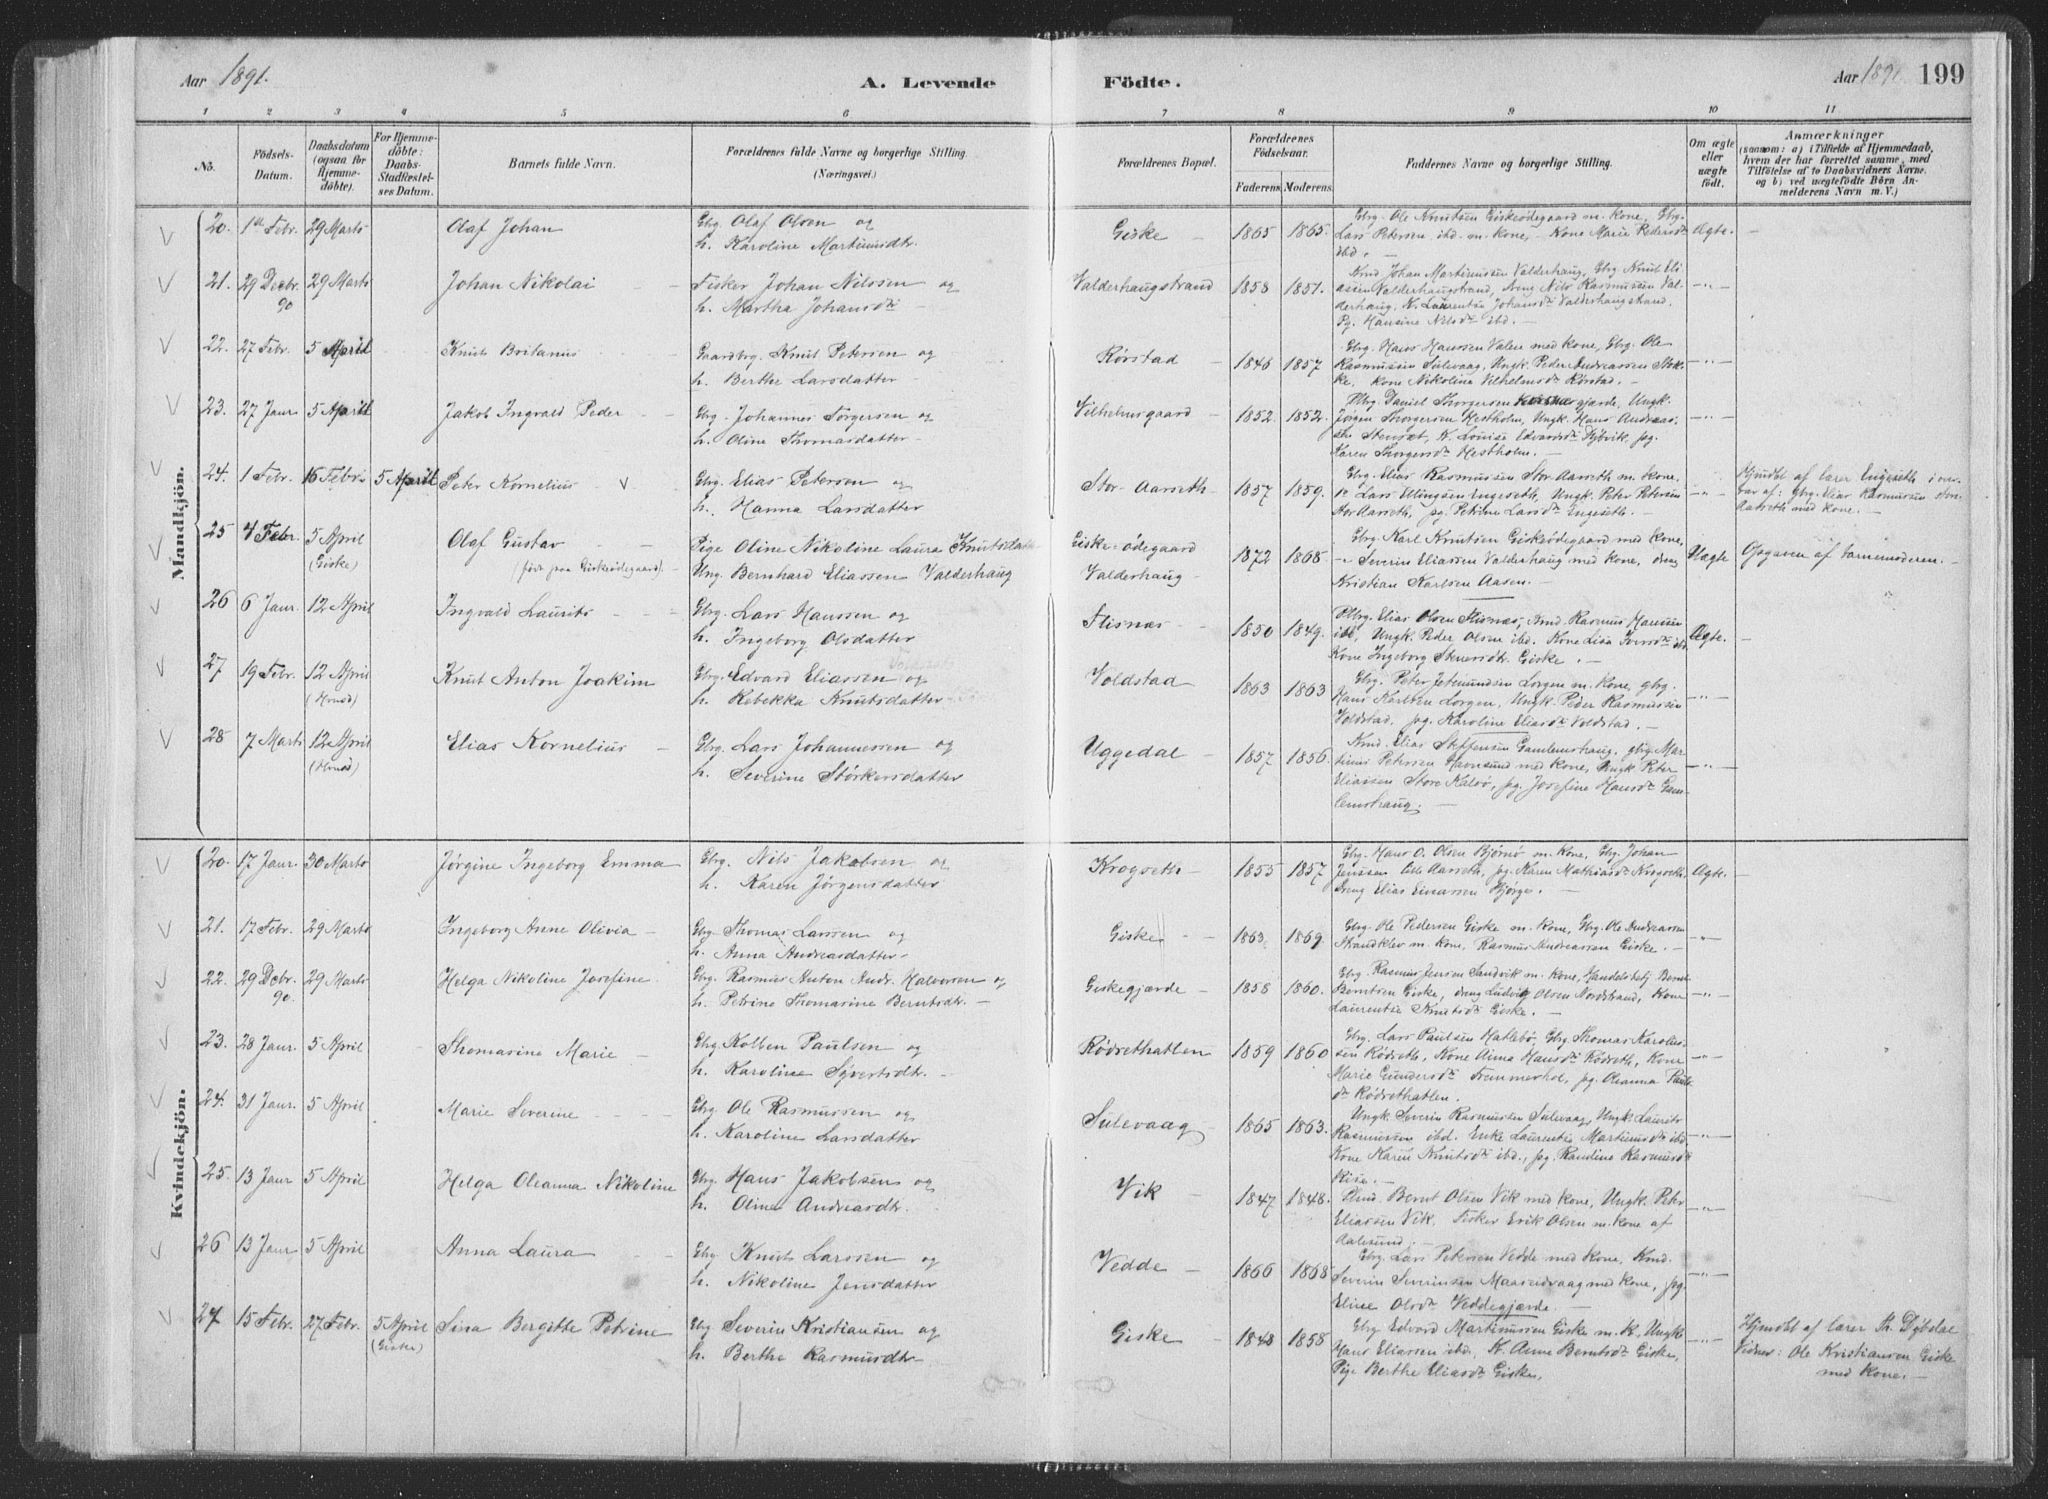 Aar 1891. A. Levende Födte. Aar 1891 199
1 2 3 4 5 6 7 8 9 10 11
No. Födsels-Datum. Daabsdatum (ogsaa for Hjemmedöbte). For Hjemmedöbte: Daabs-Stadfæstelses Datum. Barnets fulde Navn. Forældrenes fulde Navne og borgerlige Stilling. (Næringsvei.) Forældrenes Bopæl. Forældrenes Födselsaar. Faderens. Moderens. Faddernes Navne og borgerlige Stilling. Om ægte eller uægte födt. Anmærkninger (saasom: a) i Tilfælde af Hjemmedaab, hvem der har forrettet samme, med Tilföielse af to Daabsvidners Navne, og b) ved uægtefödte Börn Anmelderens Navn m. V.)
Mandkjön.
20. 1ste Febr. 29 Marts Olaf Johan Gbrg. Olaf Olsen og Giske 1865 1865. Gbrg. Ole Knutsen Giskeødegaard m. Kone, Gbrg. Ægte.
h. Karoline Martinusdtr. Lars Petersen ibd. m. Kone, Kone Marie Pedersdtr
ibd. —
21. 29 Decbr. 90 29 Marts Johan Nikolai Fisker Johan Nilssen og Valderhaugstrand 1858 1851. Kmd. Johan Martinussen Valderhaug, Gbrg. Knut Eli- —"—
h. Martha Johansdtr assen Valderhaugstrand, dreng Nils Rasmussen Val-
derhaug, K. Laurentse Johansdtr Valderhaugstrand.
Pg. Hansine Nilsdtr ibd. —
22. 27 Febr. 5 April Knut Britanus Gaardbrg. Knut Petersen og Rørstad 1846 1857 Gbrg. Hans Hanssen Valen med Kone, Gbrg. Ole —"—
h. Berthe Larsdatter Rasmussen Sulevaag, Ungk. Peder Andreassen Stok-
ke, Kone Nikolina Vilhelmsdtr Rørstad. —
23. 27 Janr. 5 April Jakob Ingvald Peder Gbrg. Johannes Torgersen og Vilhelmsgaard 1852. 1852. Daniel Thorgersen gjærde, Ungk. —"—
h. Oline Thomasdatter Jørgen Thorgersen Hestholm, Ungk. Hans Andreas-
sen Stensæt, K. Louise Edvardsdtr Dybvik, pg.
Karen Thorgersdtr Hestholm. —
24. 1 Febr. 16 Febr. 5 April Peter Kornelius Gbrg. Elias Petersen og Stor-Aarseth 1857 1859. Gbrg. Elias Rasmussen Stor Aarseth m. Kone. —"— Hjmdbt af lærer Engeseth i over-
h. Hanna Larsdatter Lars Ellingsen Engeseth, Ungk. Peter Petersen vær af: gbrg. Elias Rasmussen Stor-
Stor Aarseth, pg. Petrine Larsdtr Engeseth. — Aarseth med Kone. —
25 4 Febr. 5 April (Giske) Olaf Gustav Pige Oline Nikoline Laura Knutsdatter Giske-ødegaard 1872 1868 Gbrg. Karl Knutsen Giskeødegaard med Kone, Uægte Opgaven af barnemoderen. —
(født paa Giskeødegaard). Ung. Bernhard Eliassen Valderhaug Valderhaug Severin Eliassen Valderhaug med Kone, dreng
Kristian Karlsen Aasen. —
26 6 Janr. 12 April Ingvald Laurits Gbrg. Lars Hanssen og Flisnæs 1850 1849. Elias Olsen Flisnæs, Rasmus Hanssen Ægte. —
h. Ingeborg Olsdatter ibd, Ungk. Peder Olsen ibd. Kone Lisa Iversdtr ibd.
Kone Ingeborg Giske. —
27 19 Febr. 12 April Knut Anton Joakim Gbrg. Edvard Eliassen og Voldstad 1863 1863 Gbrg. Peter Jetmundsen Lorgen m. Kone, gbrg. —"—
h. Rebekka Knutsdatter Hans Karlsen Lorgen, Ungk. Peder Rasmussen
Voldstad, pg. Karoline Eliasdtr Voldstad. —
28 7 Marts 12 April Elias Kornelius Gbrg. Lars Johannessen og Uggedal 1857 1856. Kmd. Elias Steffensen Gamlemshaug, gbrg. Mar- —"—
h. Severine Størkersdatter tinus Petersen Havnsund med Kone, Ungk. Peter
Eliassen Store Kalvø, pg. Josefine Hansdtr Gam-
lemshaug. —
Kvindekjön.
20. 17 Janr. 30 Marts Jørgine Ingeborg Emma Gbrg. Nils Jakobsen og Krogseth 1855 1857 Gbrg. Hans O. Olsen Bjørnø m. Kone, Gbrg. Johan Ægte. —
h. Karen Jørgensdatter Jenssen Aarseth, pg. Karen Mathiasdtr Krogseth,
Dreng Elias Einarsen Hjørge. —
21. 17 Febr. 29 Marts Ingeborg Anne Olivia Gbrg. Thomas Larssen og Giske 1863. 1869. Gbrg. Ole Pedersen Giske m. Kone, Gbrg. Ole Andreassen —"—
h. Anna Andreasdatter Strandklev m. Kone, Rasmus Andreassen Giske. —
22. 29 Decbr. 90. 29 Marts Helga Nikoline Josefine Gbrg. Rasmus Anton Andr. Halvorsen og Giskegjærde 1858 1860. Gbrg. Rasmus Jensen Sandvik m. Kone, Handelsbetj. Bernt —"—
h. Petrine Thomasine Berntsdtr. — Berntsen Giske, dreng Ludvig Olsen Nordstrand, Kone
Laurentse Knutsdtr Giske. —
23. 28 Janr. 5 April Thomasine Marie Gbrg. Kolben Paulsen og Rødsethatlen 1859 1860 Gbrg. Lars Paulsen Hatlebø, Gbrg. Thomas Karolus- —"—
h. Karoline Syvertsdtr. sen Rødseth, Kone Anna Hansdtr Rødseth, Kone
Marie Gundersdtr Fremmerhol, pg. Oleanna Pauls-
dtr Rødsethatlen.
24. 31 Janr. 5 April Marie Severine Gbrg. Ole Rasmussen og Sulevaag 1865 1863. Ungk. Severin Rasmussen Sulevaag, Ungk. Laurits —"—
h. Karoline Larsdatter Rasmussen ibd. Enke Laurentse Martinusdtr ibd.
Kone Karen Knutsdtr ibd., pg. Randine Rasmusdtr
Rise. —
25. 13 Janr 5 April Helga Oleanna Nikoline Gbrg. Hans Jakobsen og Vik 1847 1848. Bernt Olsen Vik med Kone, Ungk. Peter —"—
h. Oline Andreasdtr. Eliassen Vik. Fisker Erik Olsen m. Kone af
Aalesund. —
26 13 Janr 5 April Anna Laura Gbrg. Knut Larssen og Vedde 1866 1868 Gbrg. Lars Petersen Vedde med Kone, Kmd. —"—
h. Nikoline Jensdatter Severin Severinsen Maaseidvaag med Kone, pg.
Eline Olsdtr Veddegjærde. —
27 15 Febr. 27 Febr. 5 April (Giske) Sina Bergitte Petrine Gbrg Severin Kristiansen og Giske 1848 1858 Gbrg Edvard Martinussen Giske m. K, Ungk —"— Hjmdbt af lærer P. Dybdal
h. Berthe Rasmusdtr. Hans Eliassen ibd, K. Anne Berntsdtr Giske, Vidner: Ole Kristiansen Giske
Pige Berthe Eliasdtr Giske. med Kone. —